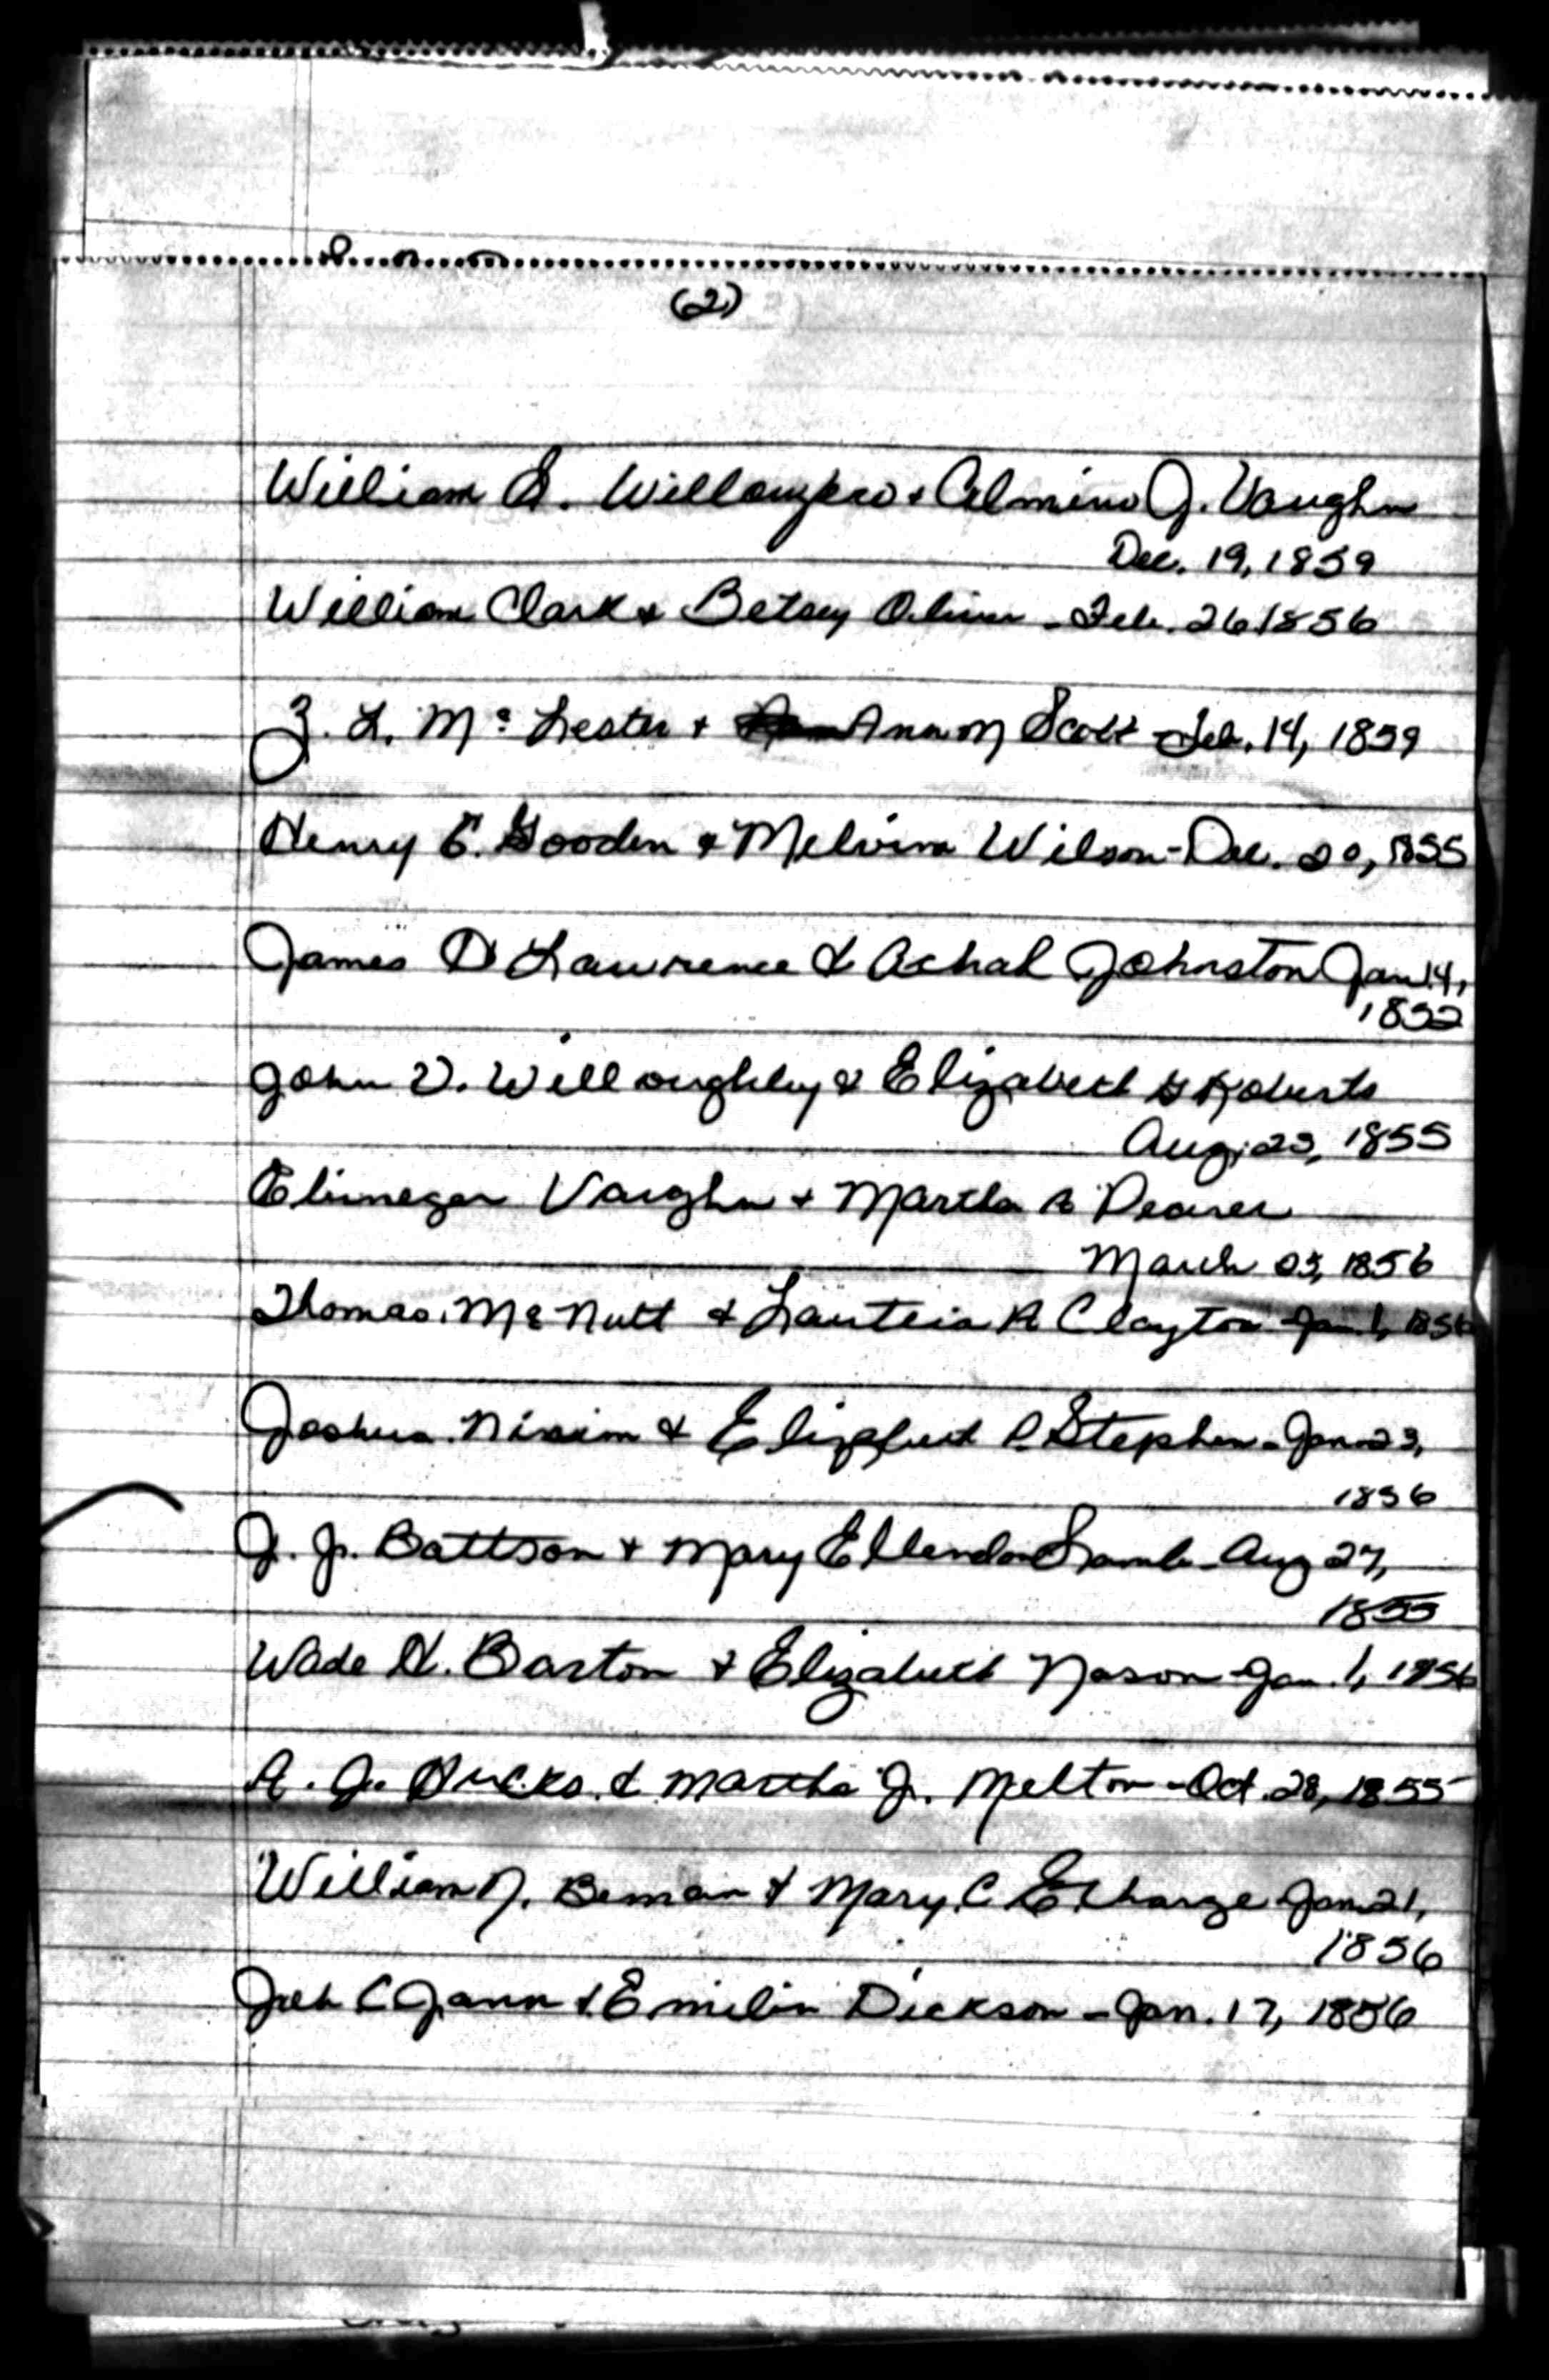 (2)
William S. & Almino J. Vaughn
Dec. 19, 1859
William Clark & Betsey Oliver - Feb. 26 1856
Z. L. Mc Lester & Ann M Scott - Feb. 14, 1859
Henry E. Gooden & Melvina Wilson - Dec. 20, 1855
James D Lawrence & Achah Johnston Jan 14,
1852
John V. Willoughby & Elizabeth G Roberts
Aug. 23, 1855
Vaughn & Martha A
March 1856
Thomas. Mc Nutt & R Clayton Jan. 1, 1856
Joshua & P. Stephen - Jan. 23,
1856
J. J. Battson & Mary Ellendor Lamb - Aug 27,
1855
Wade H. Barton & Elizabeth Nason - Jan. 1, 1856
A. J. Hucks. & Martha J. Melton - Oct. 28, 1855
William J. Beman & Mary. C Jan. 21,
1856
C & Emilin Dickson - Jan. 17, 1856